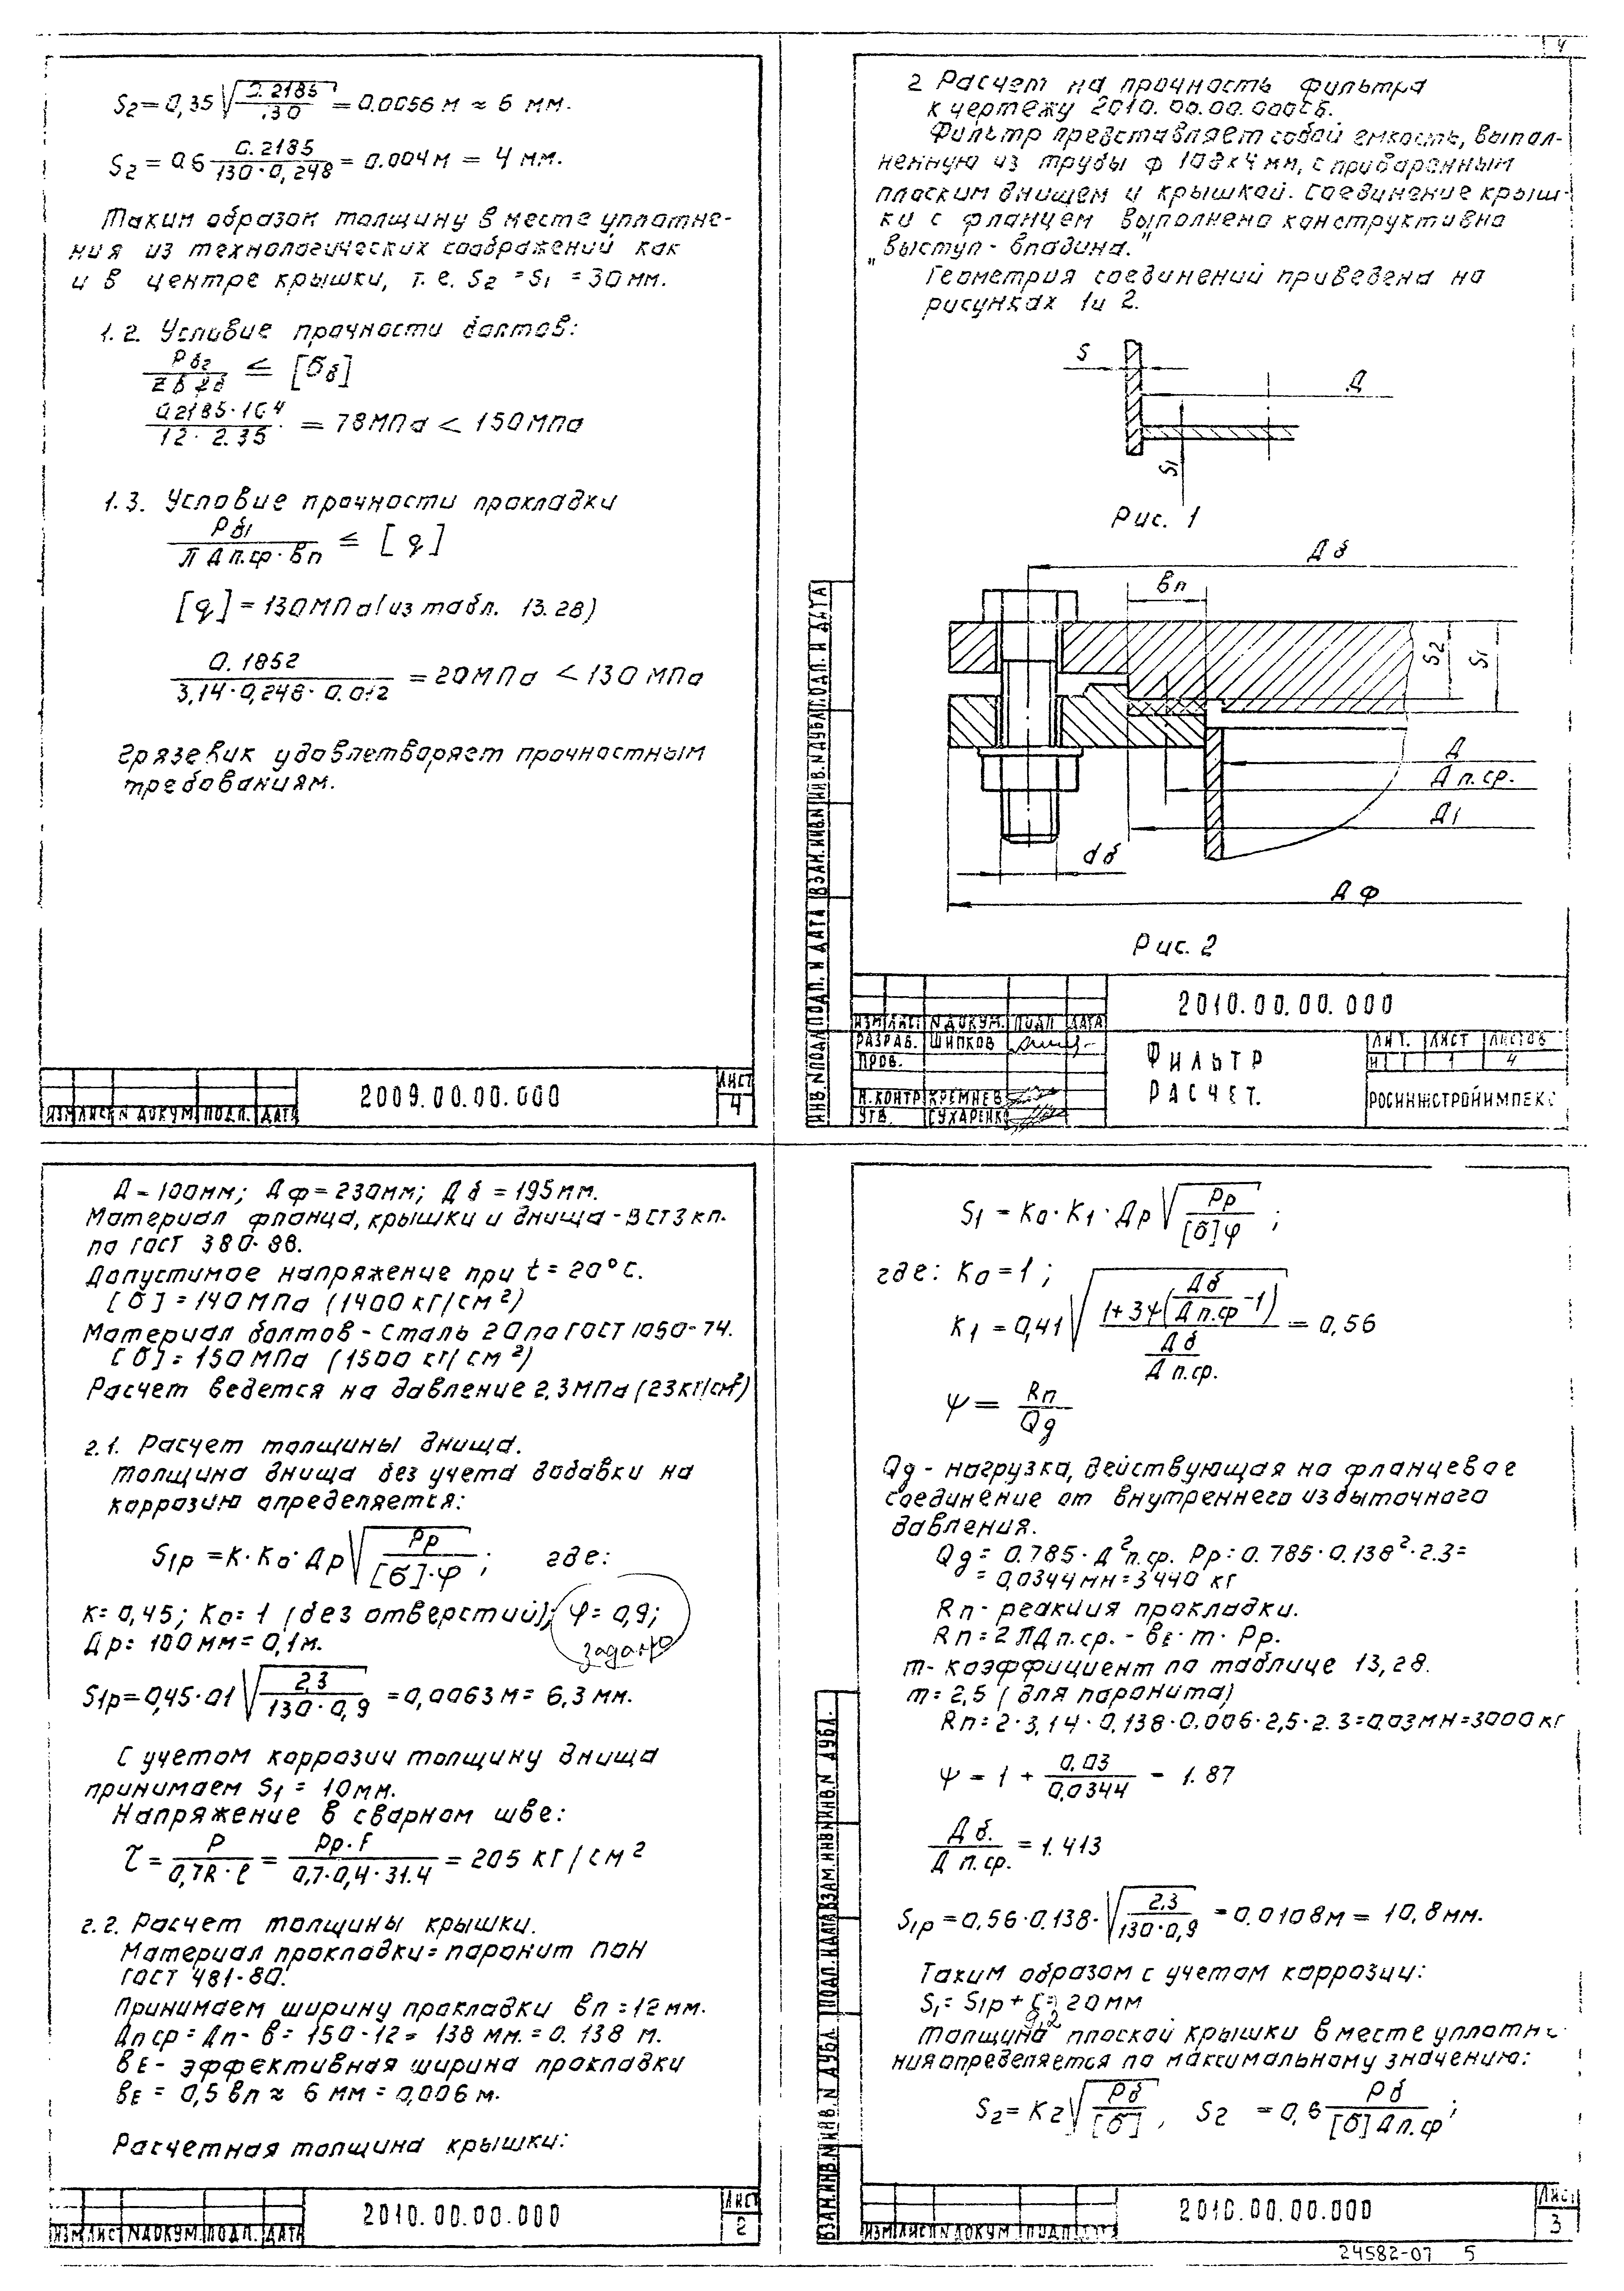 4
S2=0,35√(0.2185/130) = 0.0056 м ≈ 6 мм.
S2 = 0,6 0.2185/130·0,248 = 0.004 м = 4 мм.
Таким образом толщину в месте уплотне-
ния из технологических соображений как
и в центре крышки, т.е. S2 = S1 = 30 мм.
1.2. Условие прочности болтов:
Рб2/Zб Fб ≤ [бб]
0.2185·10⁴/12·2.35 = 78 МПа < 150 МПа
1.3. Условие прочности прокладки
Рб1/П Дп.ср·вп ≤ [q]
[q] = 130 МПа (из табл. 13.28)
0.1852/3,14·0,248·0.012 = 20 МПа < 130 МПа
Грязевик удовлетворяет прочностным
требованиям.
ИЗМ ЛИСТ N ДОКУМ. ПОДП. ДАТА
2009.00.00.000
ЛИСТ
4
2 Расчет на прочность фильтра
к чертежу 2010.00.00.000СБ.
Фильтр представляет собой емкость, выпол-
ненную из трубы ф 108х4 мм, с приваренным
плоским днищем и крышкой. Соединение крыш-
ки с фланцем выполнено конструктивно
„выступ - впадина."
Геометрия соединений приведена на
рисунках 1 и 2.
S
Д
S1
Рис. 1
Дб
вп
S2
S1
Д
Д п.ср.
Д1
dб
Д ф
Рис. 2
ИНВ. N ПОДЛ ПОДП. И ДАТА ВЗАМ.ИНВ.N ИНВ.N ДУБЛ ПОДП. И ДАТА
2010.00.00.000
ИЗМ ЛИСТ N ДОКУМ. ПОДП ДАТА
РАЗРАБ. ШИПКОВ
ПРОВ.
Н.КОНТР КРЕМНЕВ
УТВ. СУХАРЕНКО
ФИЛЬТР
РАСЧЕТ.
ЛИТ. ЛИСТ ЛИСТОВ
И 1 4
РОСИНЖСТРОЙИМПЕКС
Д = 100 мм; Дф = 230 мм; Дб = 195 мм.
Материал фланца, крышки и днища - ВСт3кп.
по ГОСТ 380-88.
Допустимое напряжение при t = 20°С.
[б] = 140 МПа (1400 кг/см²)
Материал болтов - сталь 20 по ГОСТ 1050-74.
[б] = 150 МПа (1500 кг/см²)
Расчет ведется на давление 2,3 МПа (23 кг/см²)
2.1. Расчет толщины днища.
Толщина днища без учета добавки на
коррозию определяется:
S1р = К·Ко·Др√(Рр/[б]·φ); где:
К = 0,45; Ко = 1 (без отверстий); φ = 0,9;
задано
Др = 100 мм = 0,1 м.
S1р = 0,45·0.1√(2,3/130·0,9) = 0,0063 м = 6,3 мм.
С учетом коррозии толщину днища
принимаем S1 = 10 мм.
Напряжение в сварном шве:
τ = Р/0,7К·ℓ = Рр·F/0,7·0,4·31.4 = 205 кг/см²
2.2. Расчет толщины крышки.
Материал прокладки = паронит ПОН
ГОСТ 481-80.
Принимаем ширину прокладки вп = 12 мм.
Дп ср = Дп - в = 150 - 12 = 138 мм. = 0.138 м.
вЕ - эффективная ширина прокладки
вЕ = 0,5 вп ≈ 6 мм = 0,006 м.
Расчетная толщина крышки:
ИЗМ ЛИСТ N ДОКУМ. ПОДП. ДАТА
2010.00.00.000
ЛИСТ
2
S1 = Ко·К1·Др√(Рр/[б]φ);
где: Ко = 1;
К1 = 0,41√(1+3ψ(Дб/Дп.ср -1)/Дб/Дп.ср.) = 0,56
ψ = Rп/Qд
Qд - нагрузка, действующая на фланцевое
соединение от внутреннего избыточного
давления.
Qд = 0.785·Д²п.ср. Рр = 0.785·0.138²·2.3 =
= 0,0344 мн = 3440 кг
Rп - реакция прокладки.
Rп = 2 ПДп.ср. - вЕ·m·Рр.
m - коэффициент по таблице 13,28.
m = 2,5 (для паронита)
Rп = 2·3,14·0,138·0,006·2,5·2.3 = 0.03 МН = 3000 кг
ψ = 1 + 0,03/0,0344 = 1.87
Дб./Д п.ср. = 1.413
S1р = 0,56·0.138·√(2,3/130·0,9) = 0.0108 м = 10,8 мм.
Таким образом с учетом коррозии:
S1 = S1р + С = 20 мм
Толщина плоской крышки в месте уплотне-
ния определяется по максимальному значению:
S2 = К2√(Рб/[б]), S2 = 0,6 Рб/[б] Дп.ср;
ВЗАМ.ИНВ.N ИНВ. N ДУБЛ ПОДП. И ДАТА ВЗАМ.ИНВ.N ИНВ. N ДУБЛ.
ИЗМ ЛИСТ N ДОКУМ ПОДП ДАТА
2010.00.00.000
ЛИСТ
3
24582-07 5